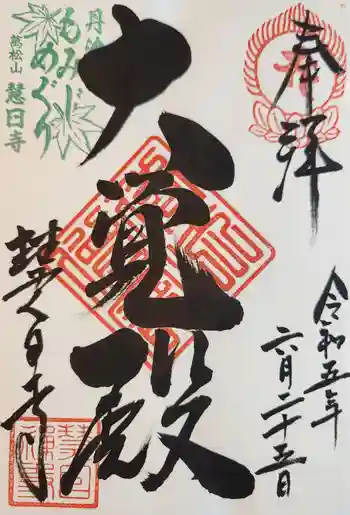 奉拝
令和五年
六月二十五日
大覚殿
慧日寺
丹波
もみじ
めぐり
萬松山 慧日寺